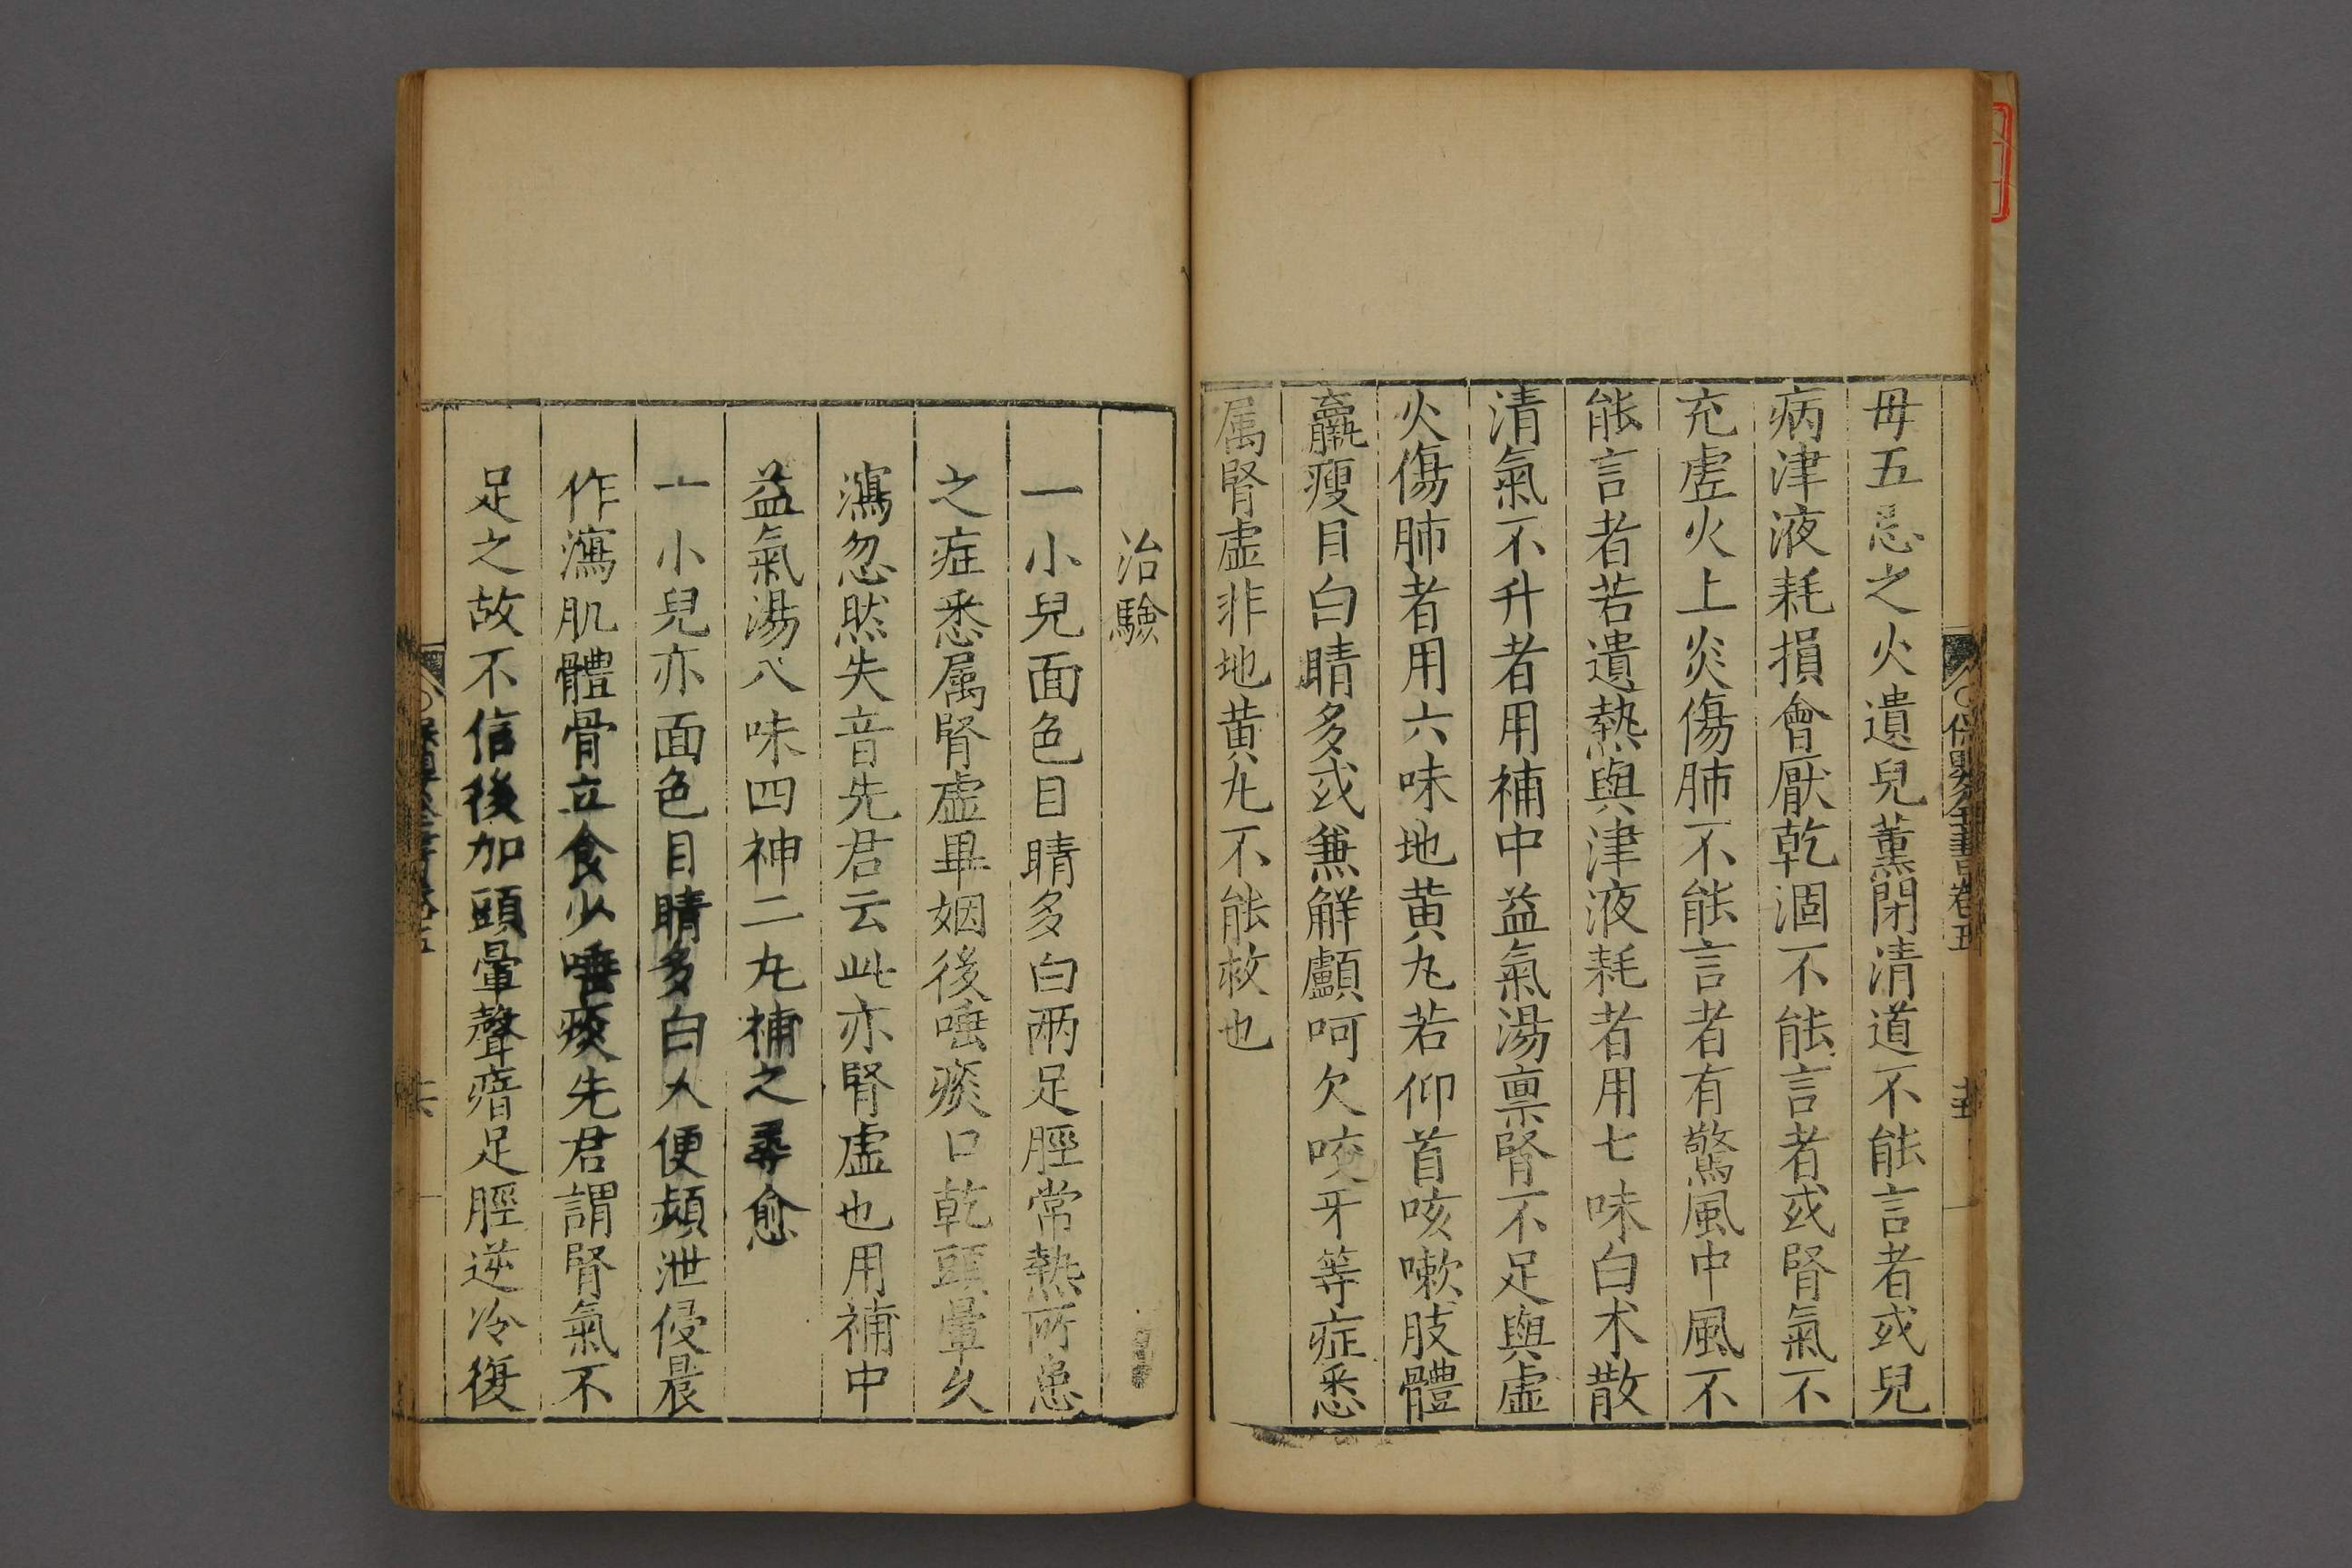 毋五忌之火遺兒薰閉清道不能言者或兒
病津液耗損會厭乾涸不能言者或腎氣不
充虛火上炎傷肺不能言者有驚風中風不
能言者若遺熱與津液耗者用七味白术散
清氣不升者用補中益氣湯禀腎不足與虛
火傷肺者用六味地黃九若仰首咳嗽肢體
羸瘦目白睛多或兼解顱呵欠咬牙等症悉
属腎虛非地黃九不能救也
治驗
一小兒面色目睛多白兩足脛常熱所患
之症悉属腎虛畢姻後唾痰口乾頭暈久
瀉忽然失音先君云此亦腎虛也用補中
益氣湯八味四神二九補之尋愈
一小兒亦面色目睛多白大便頻泄侵晨
作瀉肌體骨立食少唾痰先君謂腎氣不
足之故不信後加頭暈聲瘖足脛逆冷復